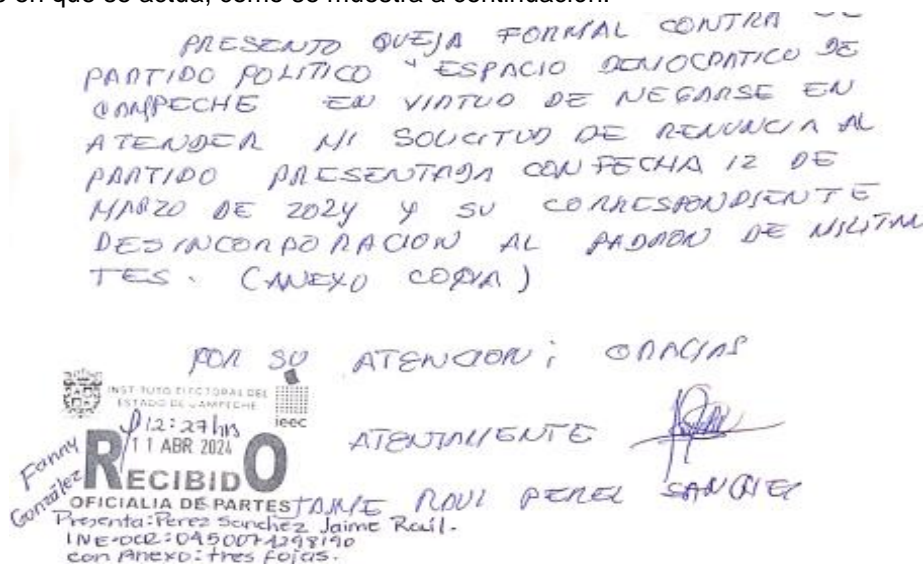 en que se actúa, como se muestra a continuación.
PRESENTO QUEJA FORMAL CONTRA DE
PARTIDO POLITICO "ESPACIO DEMOCRATICO DE
CAMPECHE EN VIRTUD DE NEGARSE EN
ATENDER MI SOLICITUD DE RENUNCIA AL
PARTIDO PRESENTADA CON FECHA 12 DE
MARZO DE 2024 Y SU CORRESPONDIENTE
DESINCORPORACION AL PADRON DE MILITAN
TES. (ANEXO COPIA)
POR SU ATENCION; GRACIAS
INSTITUTO ELECTORAL DEL
ESTADO DE CAMPECHE
ieec
12:27hrs
11 ABR 2024
RECIBIDO
OFICIALIA DE PARTES
Fanny
González
ATENTAMENTE
JAIME RAUL PEREZ SANCHEZ
Presenta: Perez Sanchez Jaime Raúl.
INE-OCR: 0450074298190
con Anexo: tres fojas.